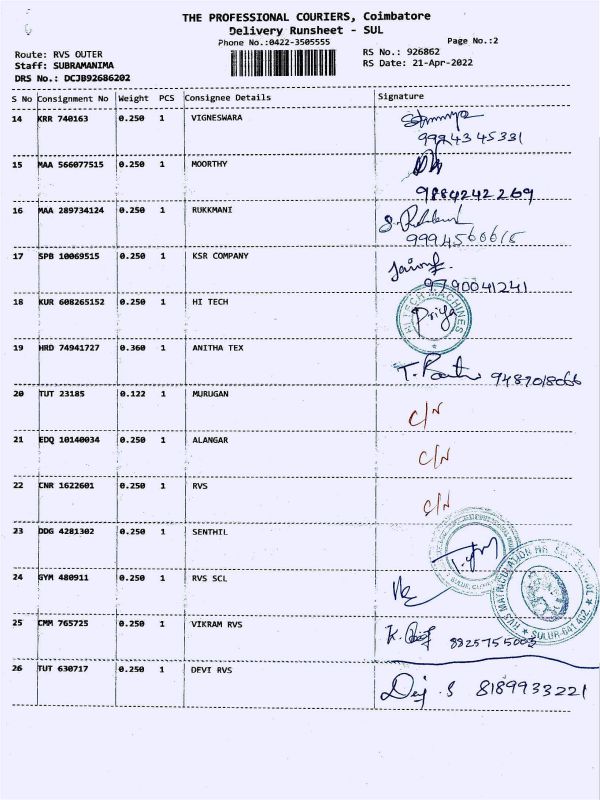 THE PROFESSIONAL COURIERS, Coimbatore
Delivery Runsheet - SUL
Phone No.:0422-3505555
Page No.:2
Route: RVS OUTER
RS No.: 926862
Staff: SUBRAMANIMA
RS Date: 21-Apr-2022
DRS No.: DCJB92686202
S No Consignment No Weight PCS Consignee Details Signature
14 KRR 740163 0.250 1 VIGNESWARA
99943 45331
15 MAA 566077515 0.250 1 MOORTHY
9884242269
16 MAA 289734124 0.250 1 RUKKMANI
9994560615
17 SPB 10069515 0.250 1 KSR COMPANY
9790041241
18 KUR 608265152 0.250 1 HI TECH
HI TECH MACHINES
Priya
19 HRD 74941727 0.360 1 ANITHA TEX
9487018066
20 TUT 23185 0.122 1 MURUGAN
C/N
21 EDQ 10140034 0.250 1 ALANGAR
C/N
22 CNR 1622601 0.250 1 RVS
C/N
23 DDG 4281302 0.250 1 SENTHIL
24 GYM 480911 0.250 1 RVS SCL
RVS MATRICULATION HR. SEC. SCHOOL
SULUR-641 402
25 CMM 765725 0.250 1 VIKRAM RVS
8825755003
26 TUT 630717 0.250 1 DEVI RVS
8189933221